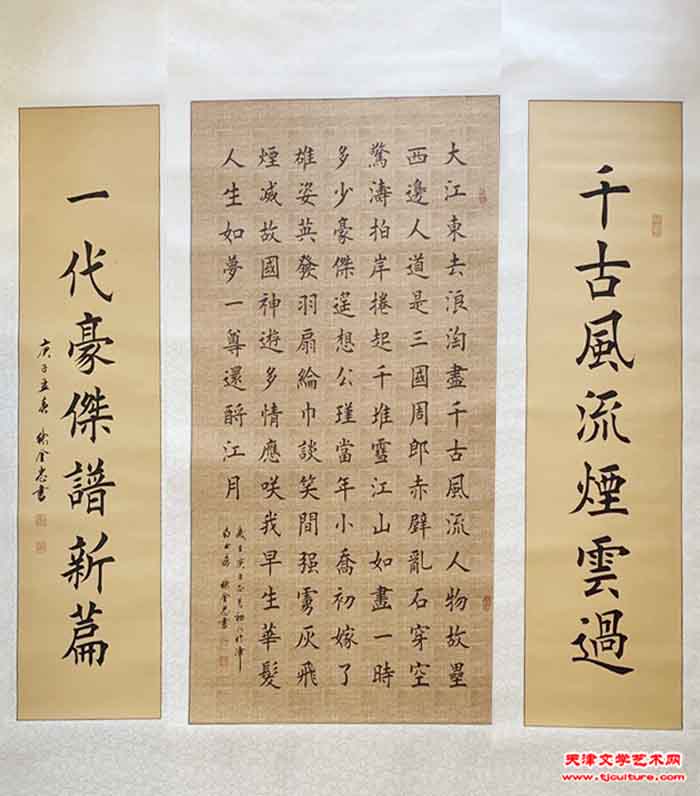 千古風流煙雲過
大江東去浪淘盡千古風流人物故壘
西邊人道是三國周郎赤壁亂石穿空
驚濤拍岸捲起千堆雪江山如畫一時
多少豪傑遥想公瑾當年小喬初嫁了
雄姿英發羽扇綸巾談笑間强虜灰飛
煙滅故國神遊多情應咲我早生華髮
人生如夢一尊還酹江月
一代豪傑譜新篇
天津文学艺术网
www.tjculture.com